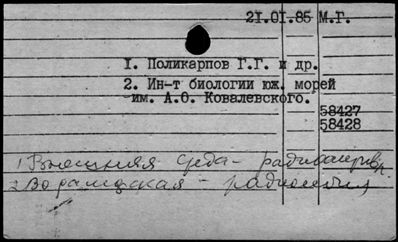 21.01.85 М.Г.
1. Поликарпов Г.Г. и др.
2. Ин-т биологии юж. морей
им. А.О. Ковалевского.
58427
58428
1) Внешняя среда - 
2